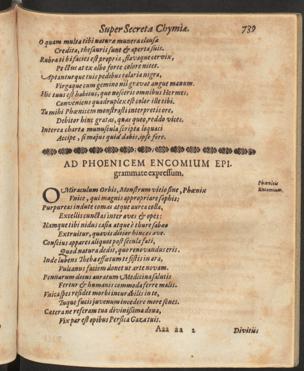 Super Secreta Chymiæ. 739
O quam multa tibi natura munera clausa
Credita, thesauris sunt & aperta suis.
Rubra tibi facies est propria, flavaque cervix,
Pectus at ex albo forte colore nitet.
Aptanturque tuis pedibus talaria nigra,
Virgaque cum gemino nil gravat angue manum.
Hic tuus est habitus, quo nosceris omnibus Hermes,
Conveniens quadruplex est color iste tibi.
Tu mihi Phœnicem monstrasti interpretis ore,
Debitor hinc gratas, quas queo, reddo vices.
Interea charta munuscula scripta loquaci
Accipe, si majus quid dabis, ipse feres.
AD PHOENICEM ENCOMIUM EPI-
grammate expressum.
Phœnicis Encomium.
O Miraculum Orbis, Monstrum vitio sine, Phœnix
Vive, qui magnis appropriare sophis;
Purpureas indute comas atque aurea colla,
Excellis cunctas inter aves & opes:
Namque tibi nidus casia atque è thure sabæo
Extruitur, quavis ditior hinces avis.
Conscius appares aliquot post secula fati,
Quod natura dedit, quo renovandus eris.
Inde lubens Thebæ ffatum te sistis in ara,
Vulcanus faciem donet ut arte novam.
Pennarum decus auratum Medicina salutis
Fertur & humanis commoda ferre malis.
Vulcastes resides morbi incurabilis in te,
Tuque facis juvenum incedere more senes.
Cætera ne referam tua divinissima dona,
Fix par est opibus Persica Gaza tuis.
Aaa aa 2 Divitiis